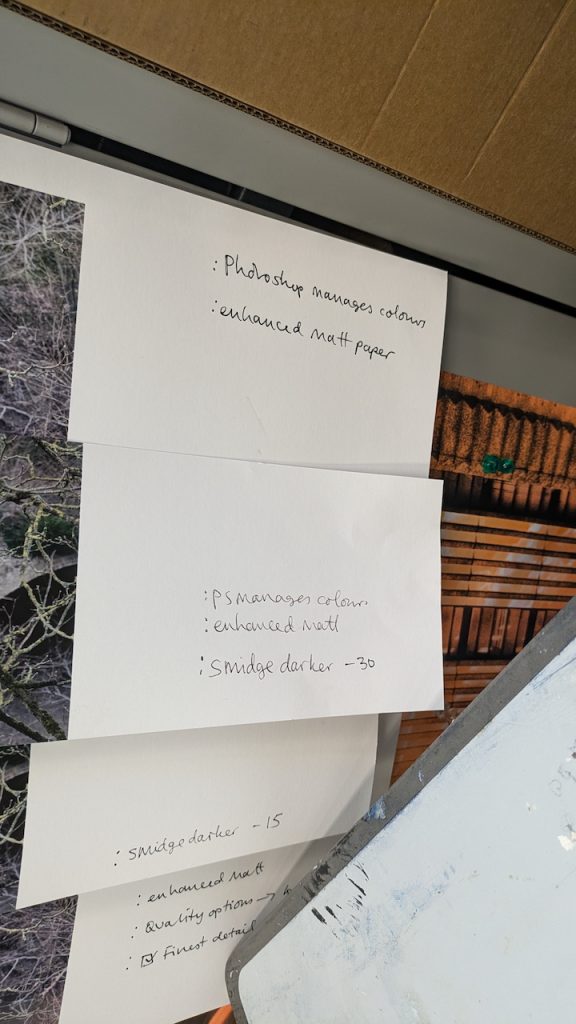 : Photoshop manages colours
: enhanced matt paper
: PS manages colours
: enhanced matt
: smidge darker -30
: smidge darker -15
: enhanced matt
: Quality options →
: ☑ Finest detail